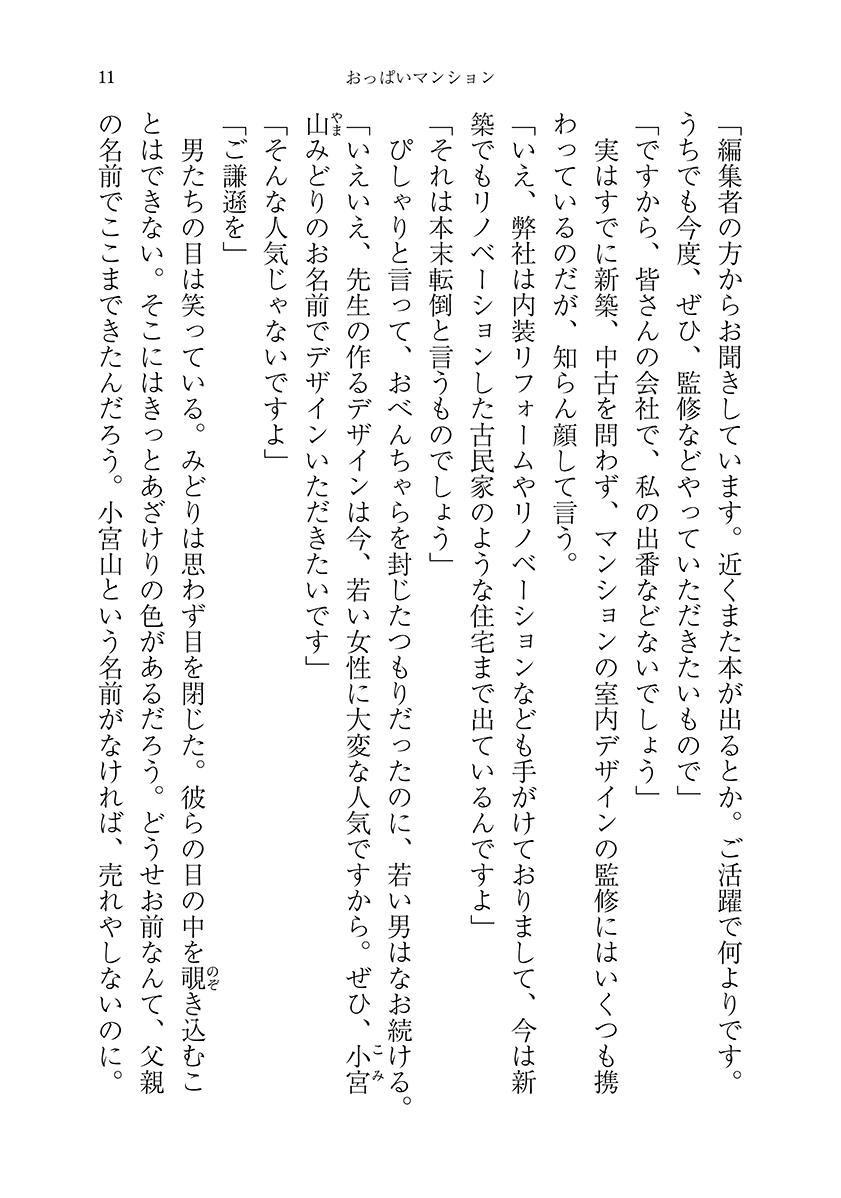 11
おっぱいマンション
「編集者の方からお聞きしています。近くまた本が出るとか。ご活躍で何よりです。
うちでも今度、ぜひ、監修などやっていただきたいもので」
「ですから、皆さんの会社で、私の出番などないでしょう」
　実はすでに新築、中古を問わず、マンションの室内デザインの監修にはいくつも携
わっているのだが、知らん顔して言う。
「いえ、弊社は内装リフォームやリノベーションなども手がけておりまして、今は新
築でもリノベーションした古民家のような住宅まで出ているんですよ」
「それは本末転倒と言うものでしょう」
　ぴしゃりと言って、おべんちゃらを封じたつもりだったのに、若い男はなお続ける。
「いえいえ、先生の作るデザインは今、若い女性に大変な人気ですから。ぜひ、小宮
こみ
山みどりのお名前でデザインいただきたいです」
やま
「そんな人気じゃないですよ」
「ご謙遜を」
　男たちの目は笑っている。みどりは思わず目を閉じた。彼らの目の中を覗き込むこ
のぞ
とはできない。そこにはきっとあざけりの色があるだろう。どうせお前なんて、父親
の名前でここまできたんだろう。小宮山という名前がなければ、売れやしないのに。